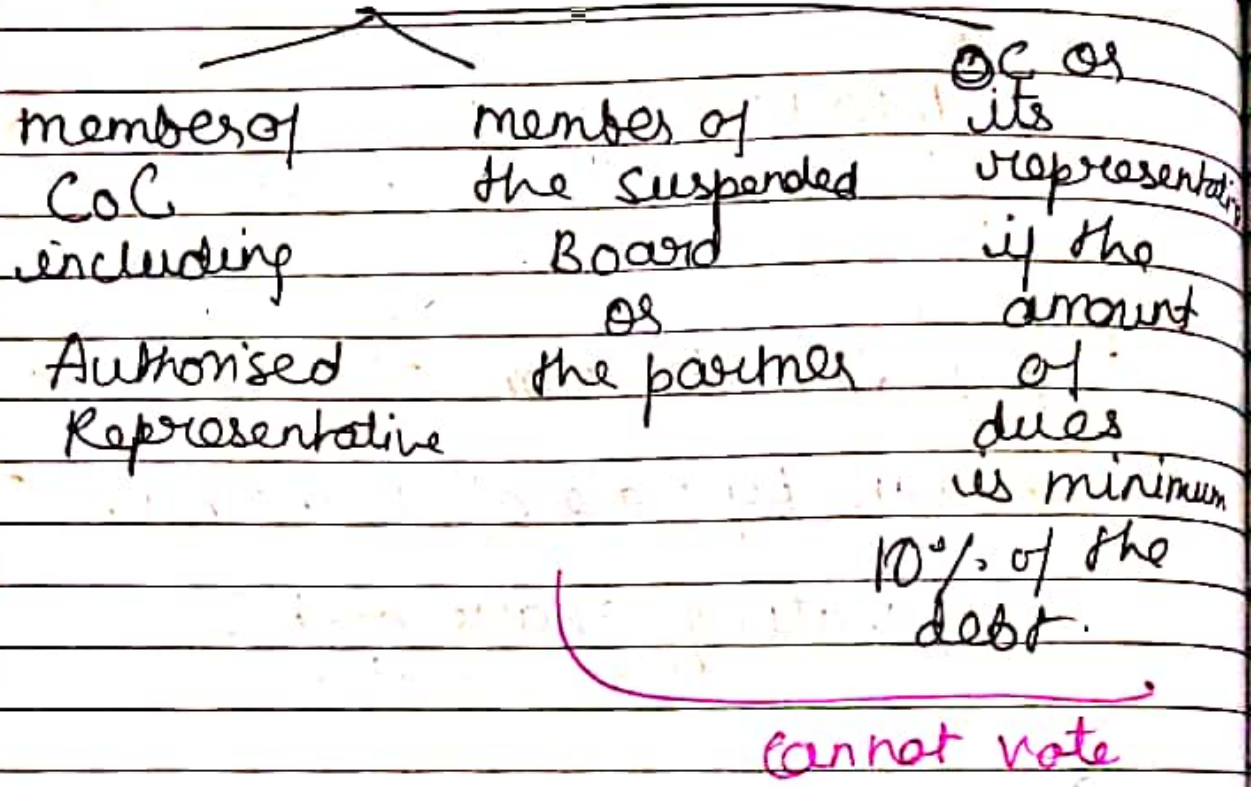 member of
CoC
including
Authorised
Representative
member of
the suspended
Board
or
the partner
OC or
its
representative
if the
amount
of
dues
is minimum
10% of the
debt.
cannot vote